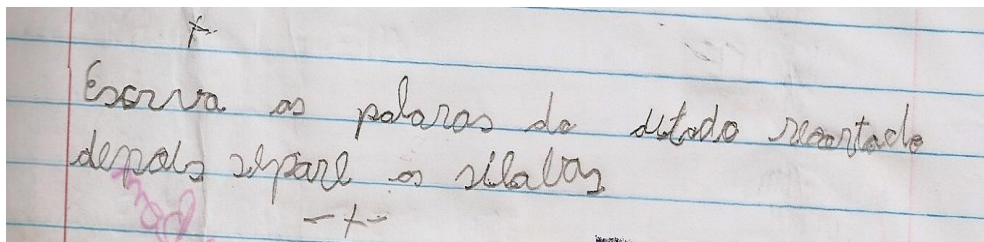 Escriva as palaras do ditado recortado
depois separe as silabas